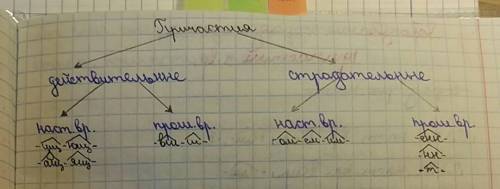 Причастия
действительные страдательные
наст.вр. прош.вр. наст.вр. прош.вр.
-ущ- -ющ- -вш- -ш- -ом- -ем- -им- -енн-
-ащ- -ящ- -нн-
-т-